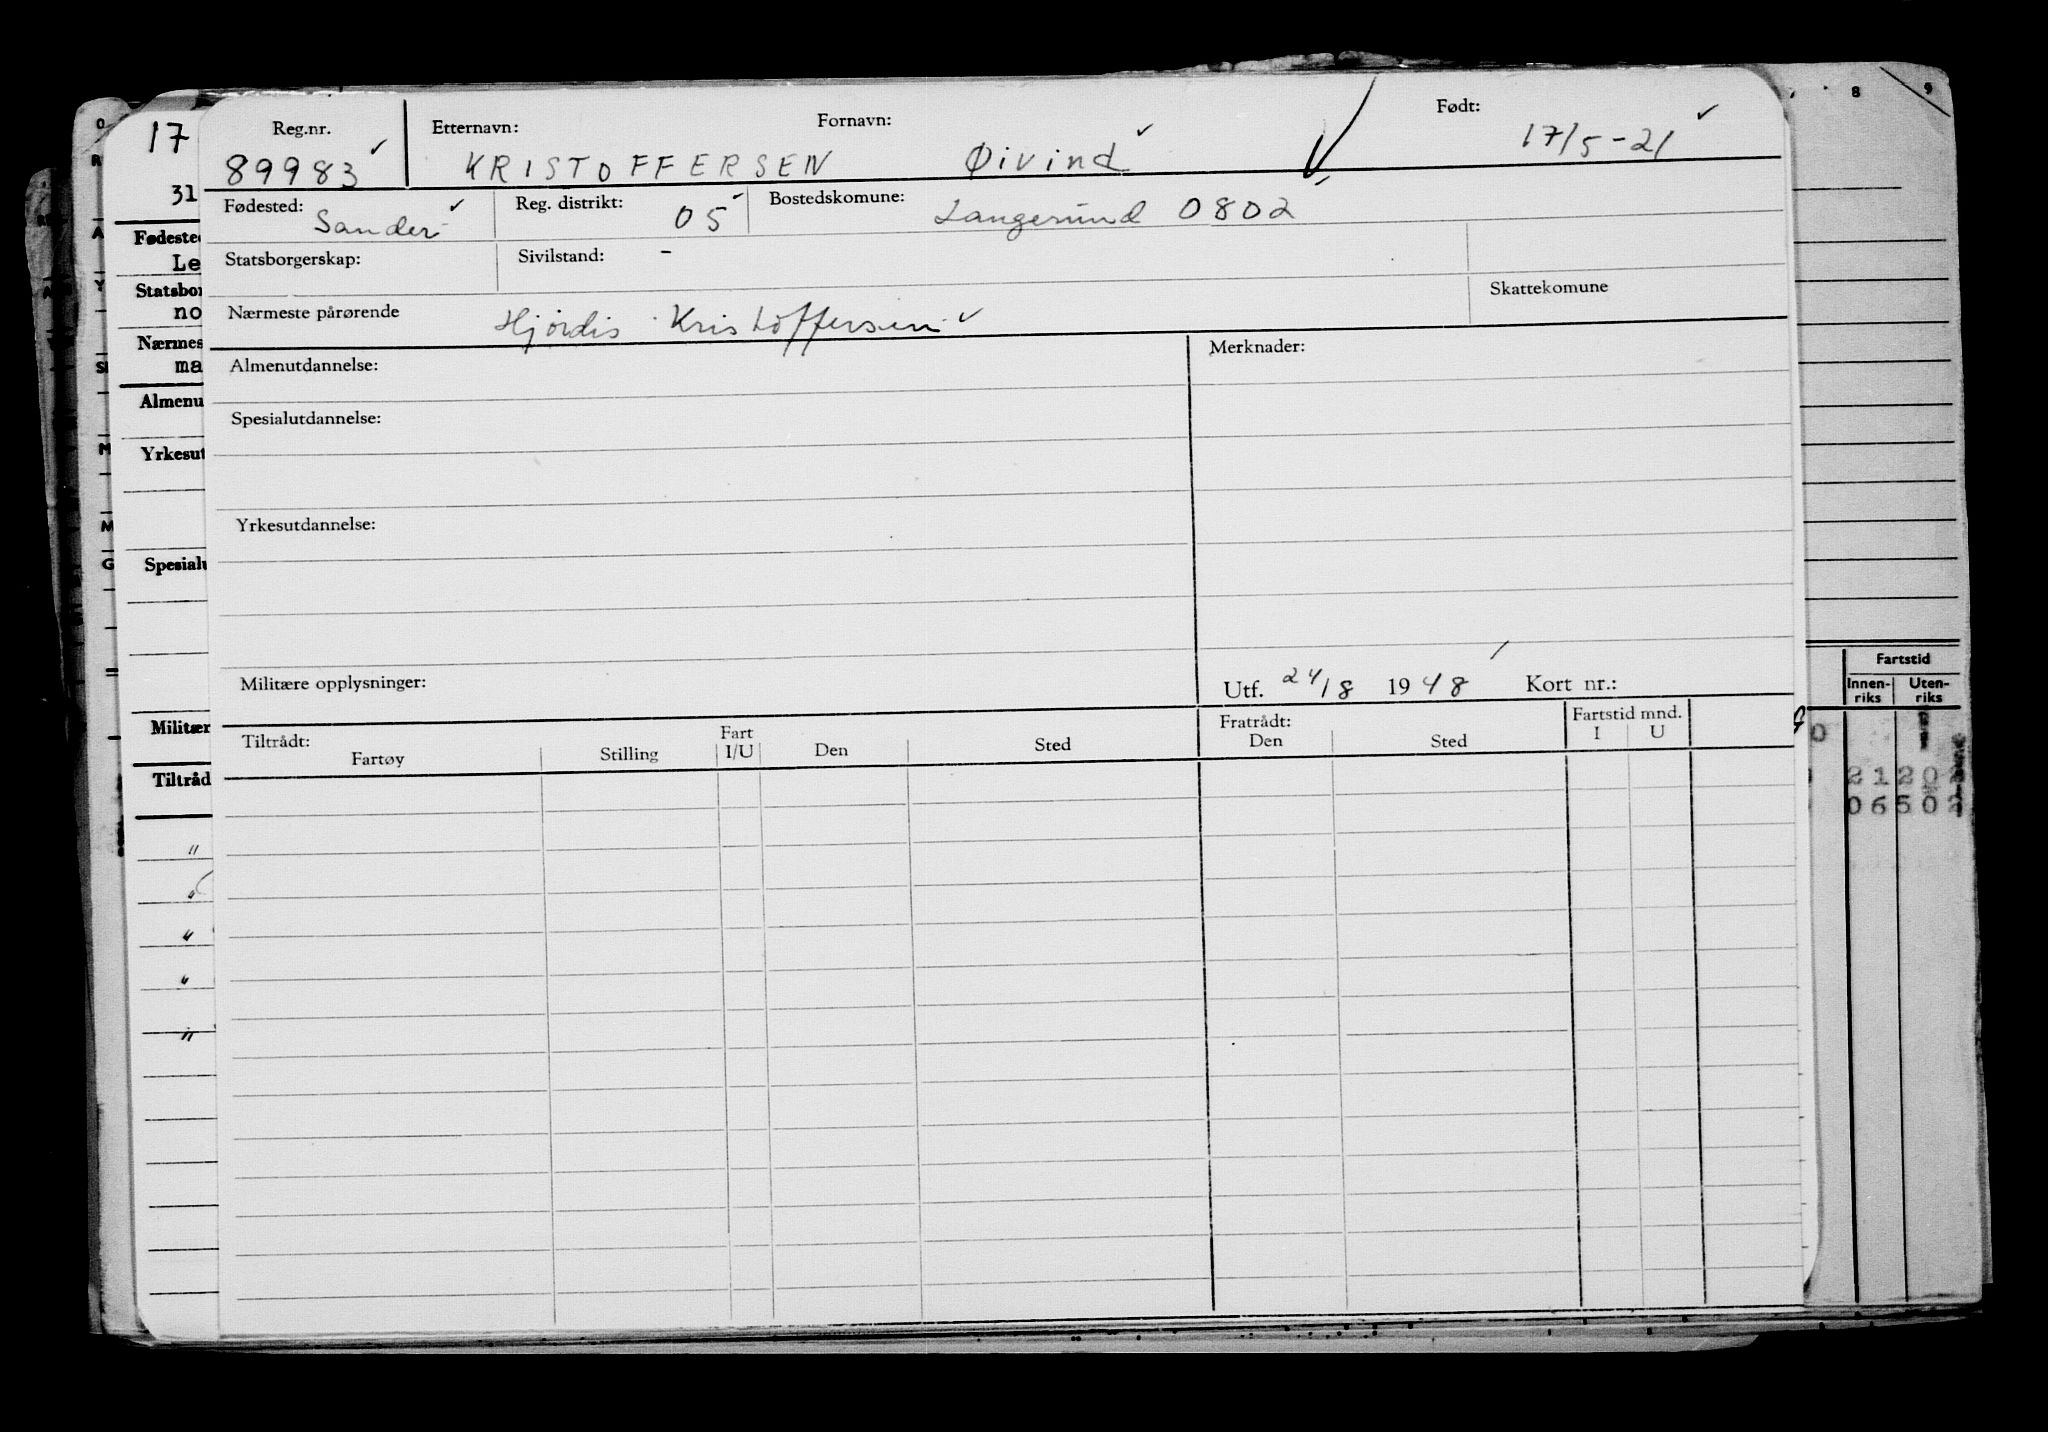 Reg.nr. Etternavn: Fornavn: Født:
89983 KRISTOFFERSEN Øivind 17/5-21
Fødested: Sander Reg. distrikt: 05 Bostedskomune: Langesund 0802
Statsborgerskap: Sivilstand: -
Nærmeste pårørende Hjördis Kristoffersen Skattekomune
Almenutdannelse: Merknader:
Spesialutdannelse:
Yrkesutdannelse:
Militære opplysninger: Utf. 24/8 1948 Kort nr.:
Tiltrådt: Fart Fratrådt: Fartstid mnd.
Fartøy Stilling I/U Den Sted Den Sted I U
17
31
Fødested
Le
Statsbor
no
Nærmes
ma
Almenu
Yrkesut
Spesialu
Militær
Tiltråd
"
"
"
"
"
O
R
A
Y
M
M
G
8 9
Fartstid
Innen-riks Uten-riks
0
2120
06502